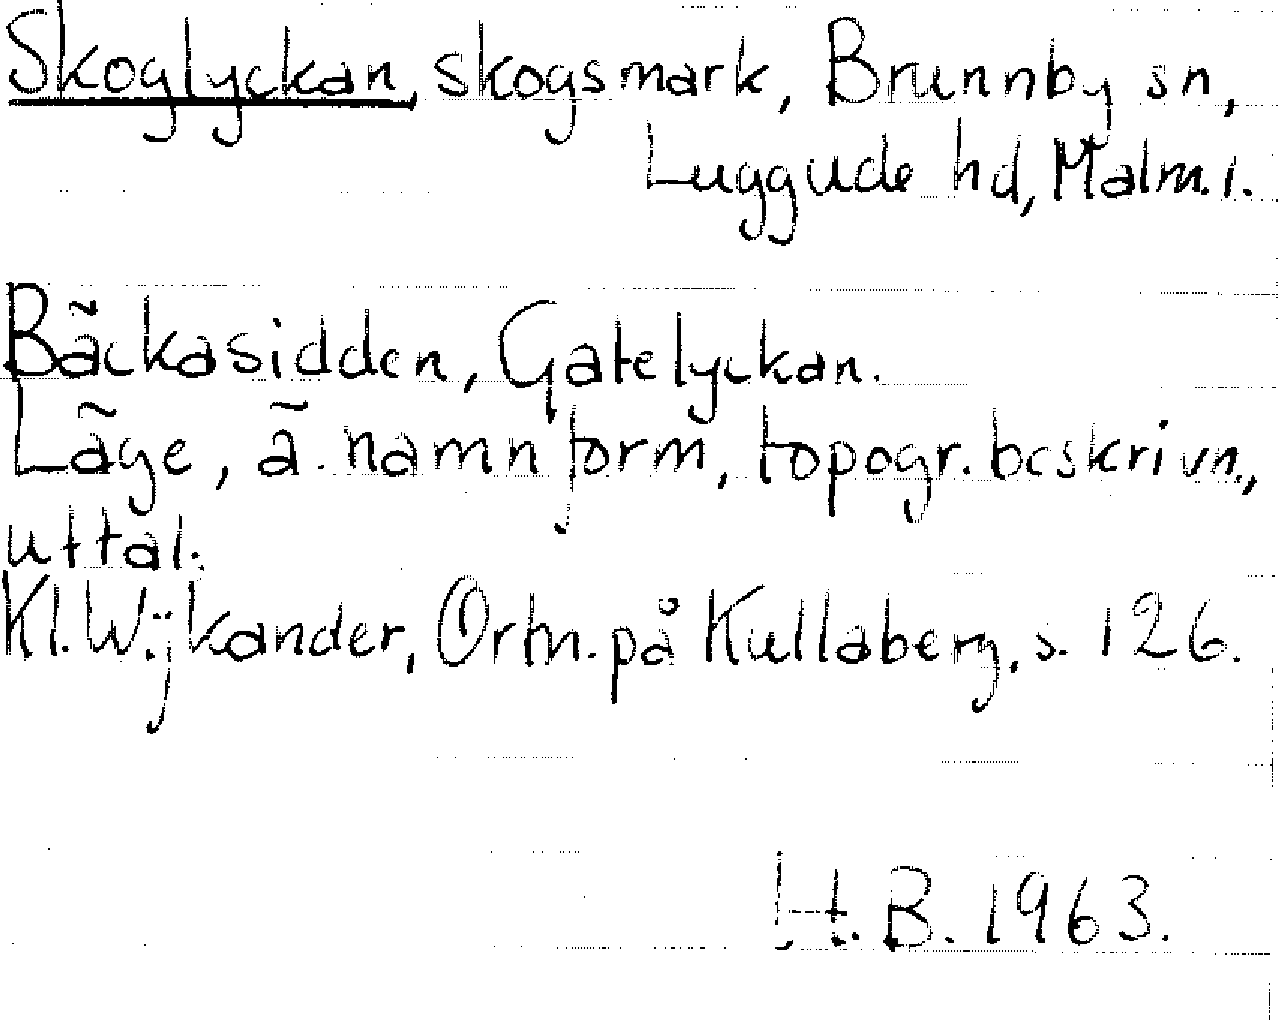 Skoglyckan, skogsmark, Brunnby sn,
Luggude hd, Malm. l.
Bäckasidden, Gatelyckan.
Läge, ä. namnform, topogr. beskrivn.,
uttal.
Kl. Wijkander, Ortn. på Kullaberg, s. 126.
H. B. 1963.